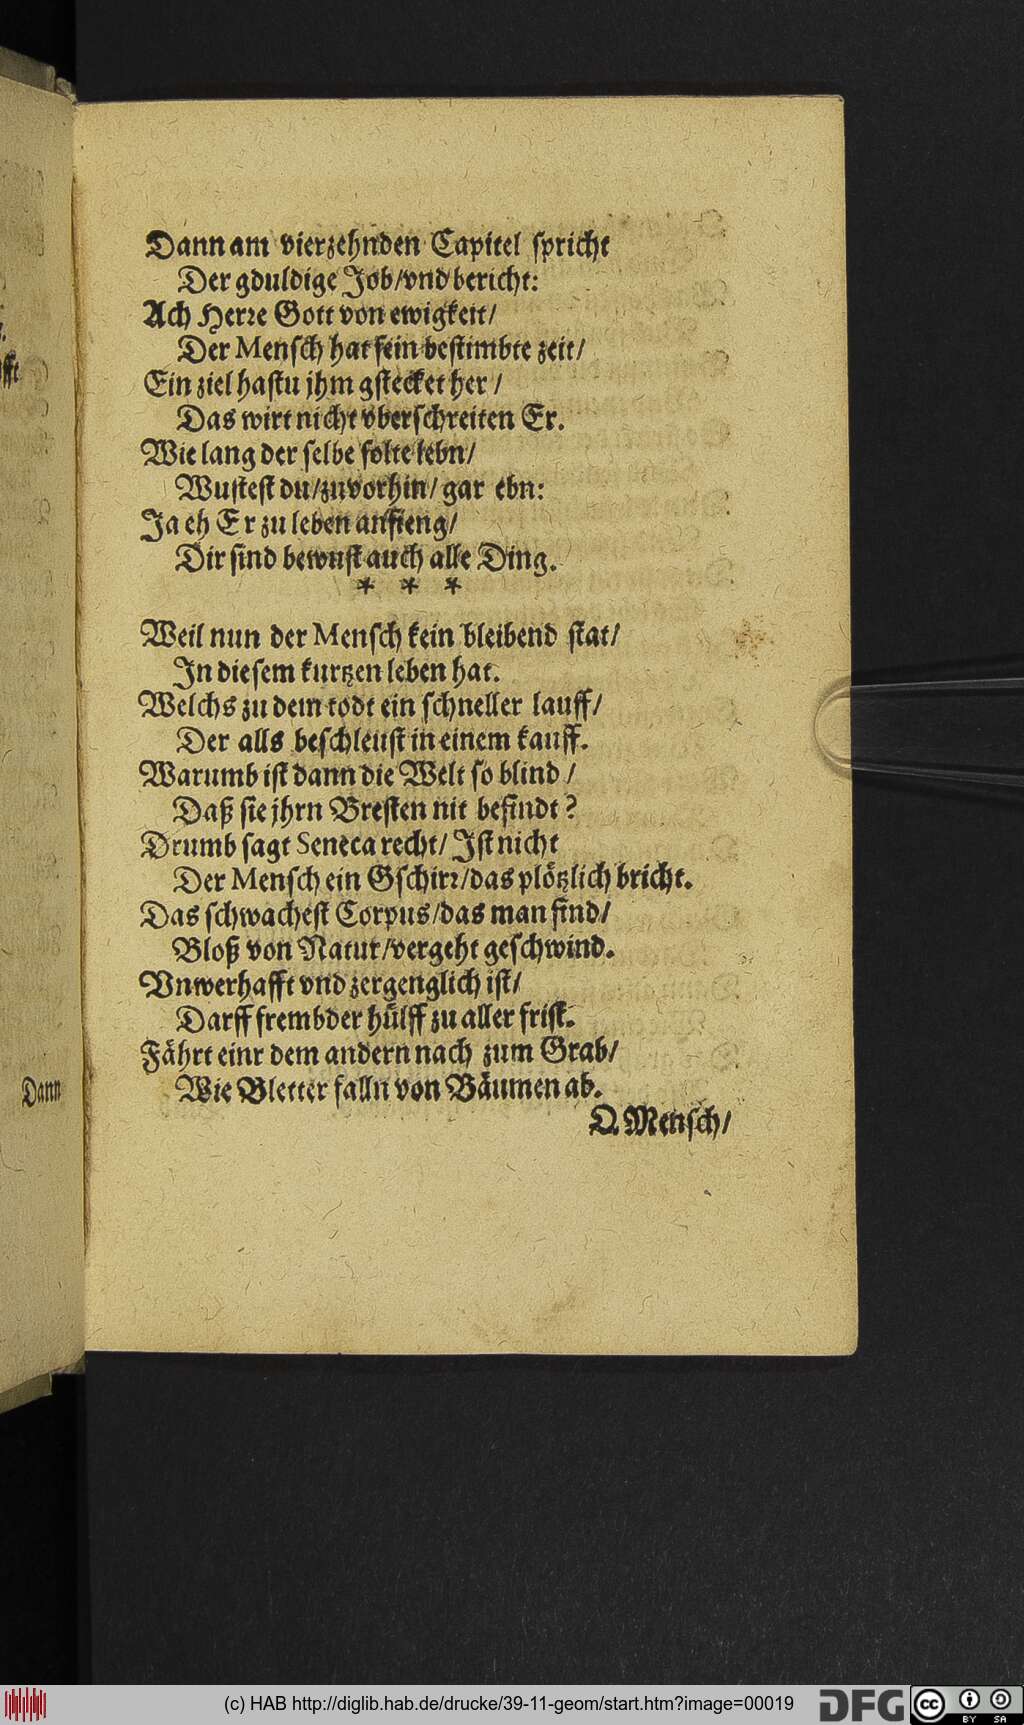 Dann am vierzehnden Capitel spricht
Der gduldige Job/vnd bericht:
Ach Herre Gott von ewigkeit/
Der Mensch hat sein bestimbte zeit/
Ein ziel hastu jhm gstecket her /
Das wirt nicht vberschreiten Er.
Wie lang der selbe solte lebn/
Wustest du/zuvorhin/ gar ebn:
Ja eh Er zu leben anfieng/
Dir sind bewust auch alle Ding.
* * *
Weil nun der Mensch kein bleibend stat/
In diesem kurtzen leben hat.
Welchs zu dem todt ein schneller lauff/
Der alls beschleust in einem kauff.
Warumb ist dann die Welt so blind /
Daß sie jhrn Bresten nit befindt?
Drumb sagt Seneca recht/ Ist nicht
Der Mensch ein Gschirr/das plötzlich bricht.
Das schwachest Corpus/das man find/
Bloß von Natur/vergeht geschwind.
Vnwerhafft vnd zergenglich ist/
Darff frembder hülff zu aller frist.
Fährt einr dem andern nach zum Grab/
Wie Bletter falln von Bäumen ab.
O Mensch/
Dann
(c) HAB http://diglib.hab.de/drucke/39-11-geom/start.htm?image=00019
DFG
cc
BY SA